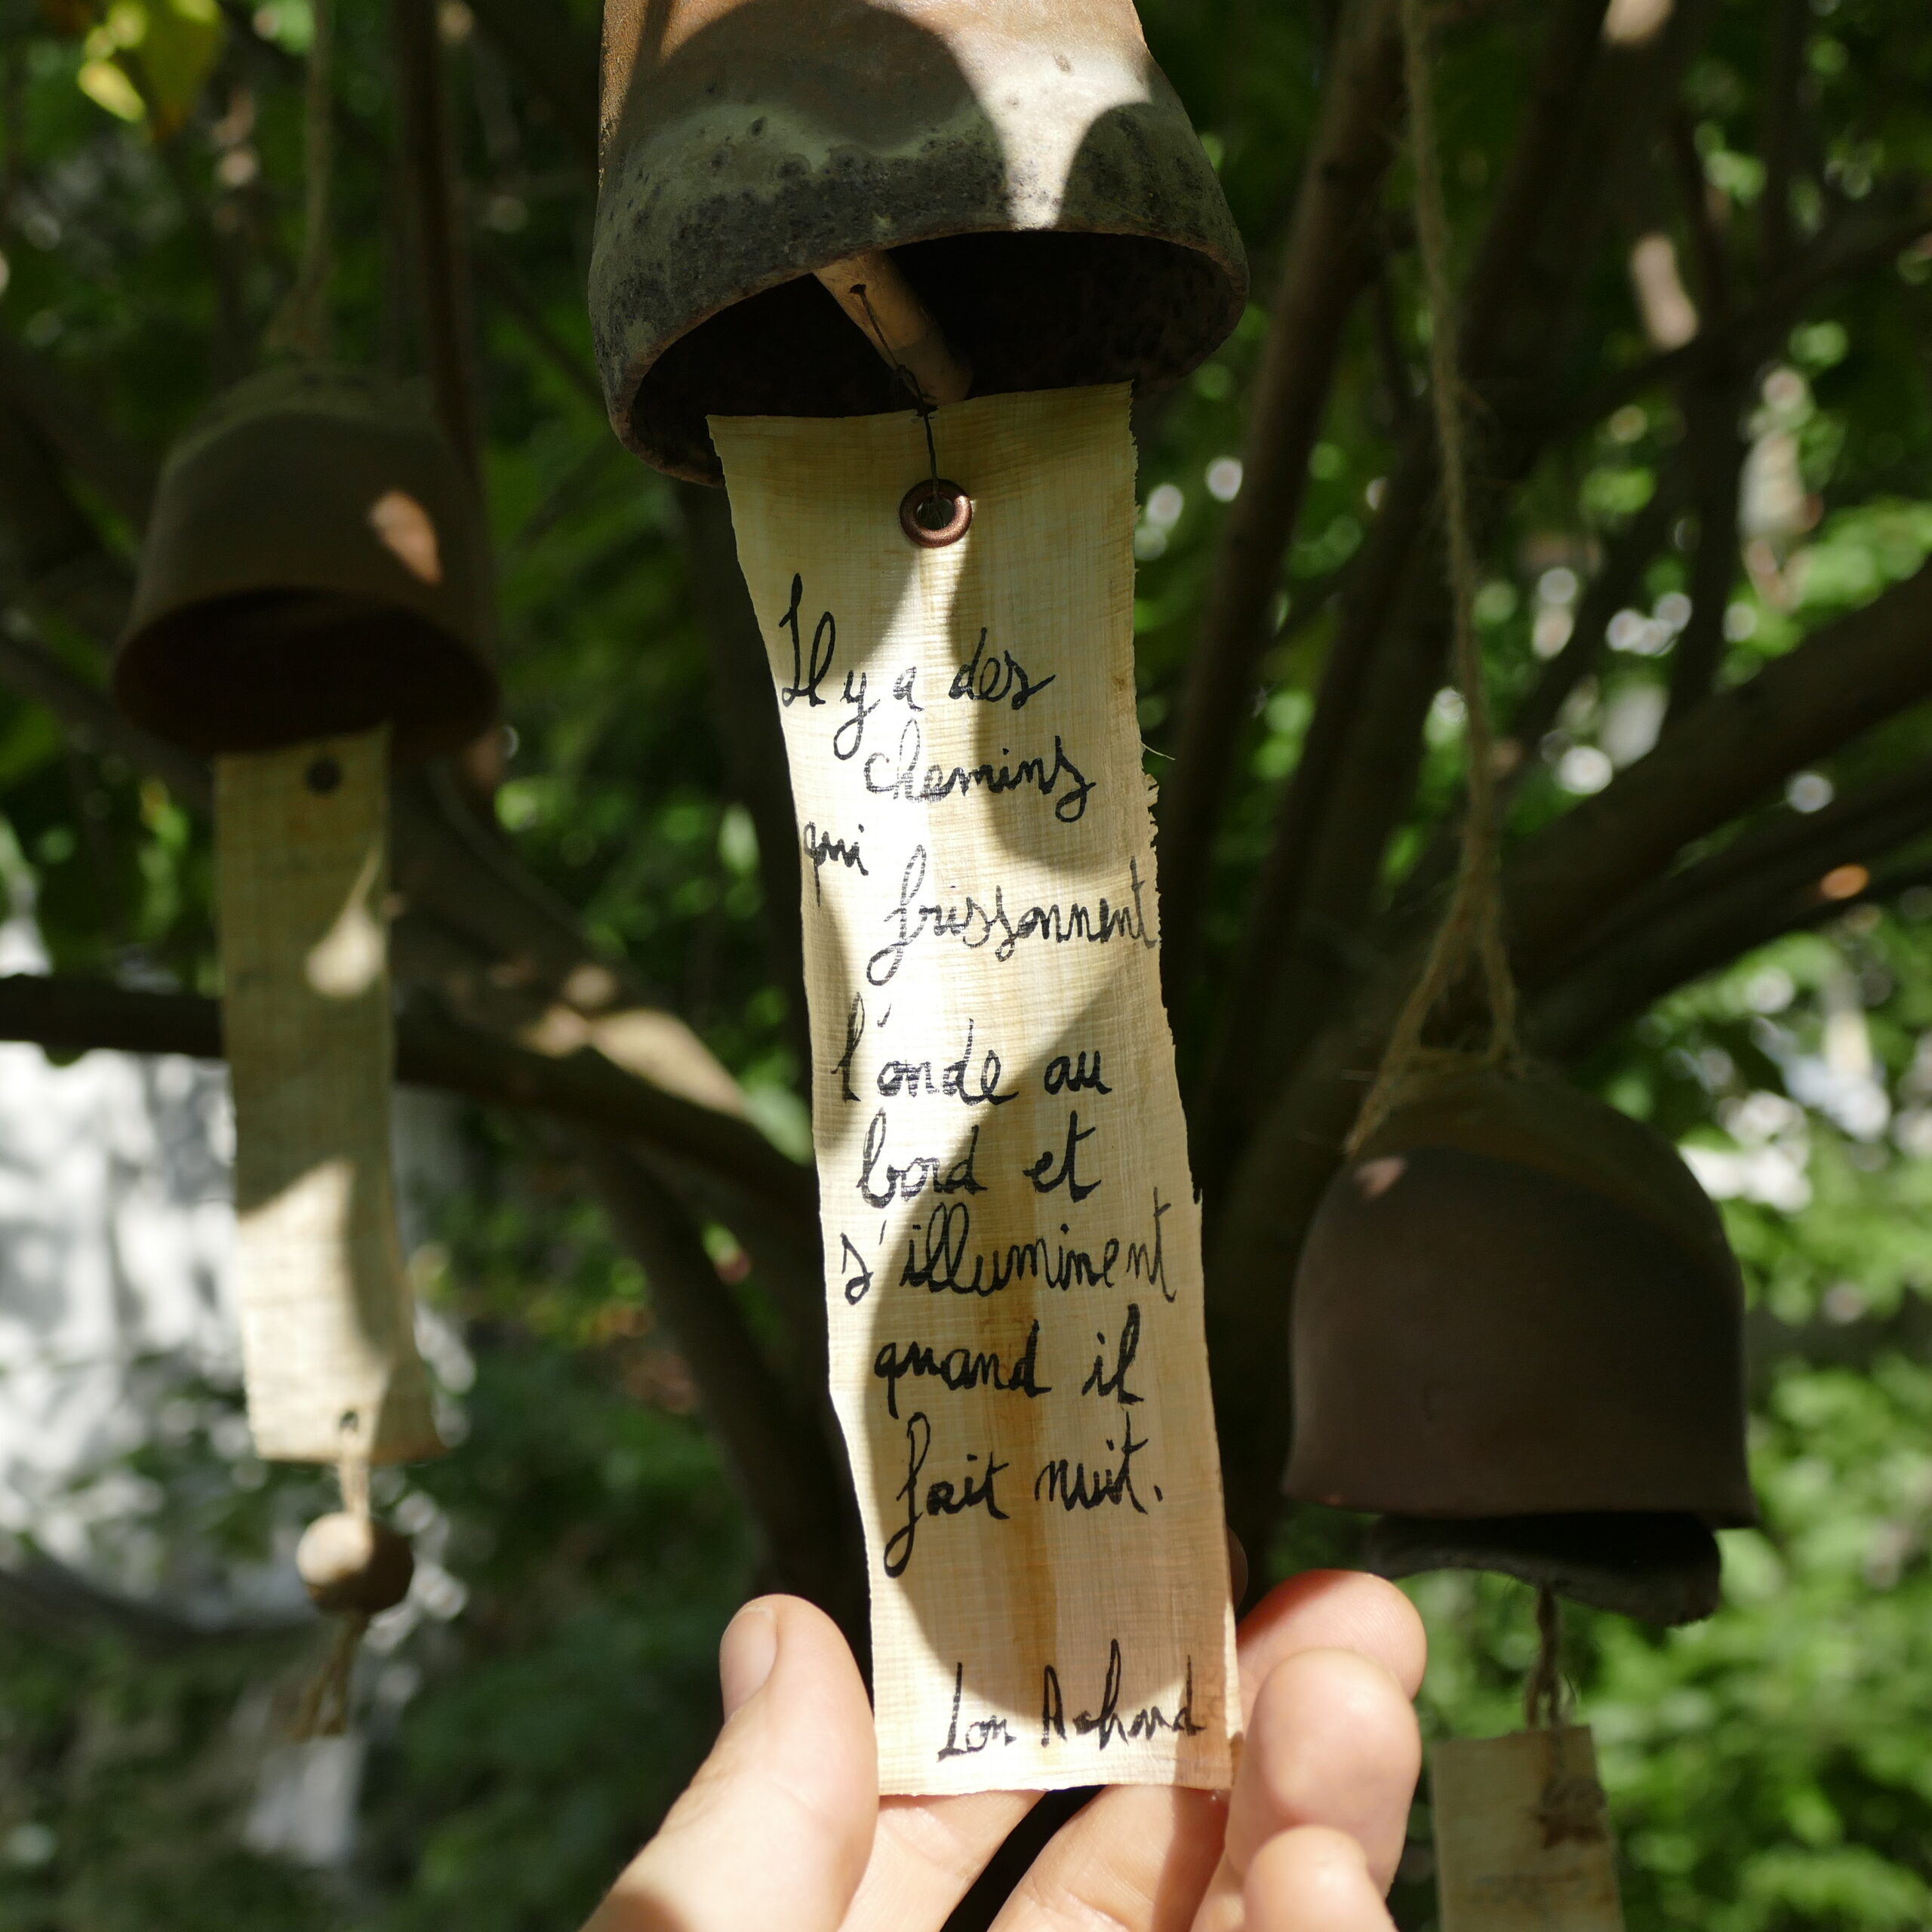 Il y a des
chemins
qui
frissonnent
l'onde au
bord et
s'illuminent
quand il
fait nuit.
Lou